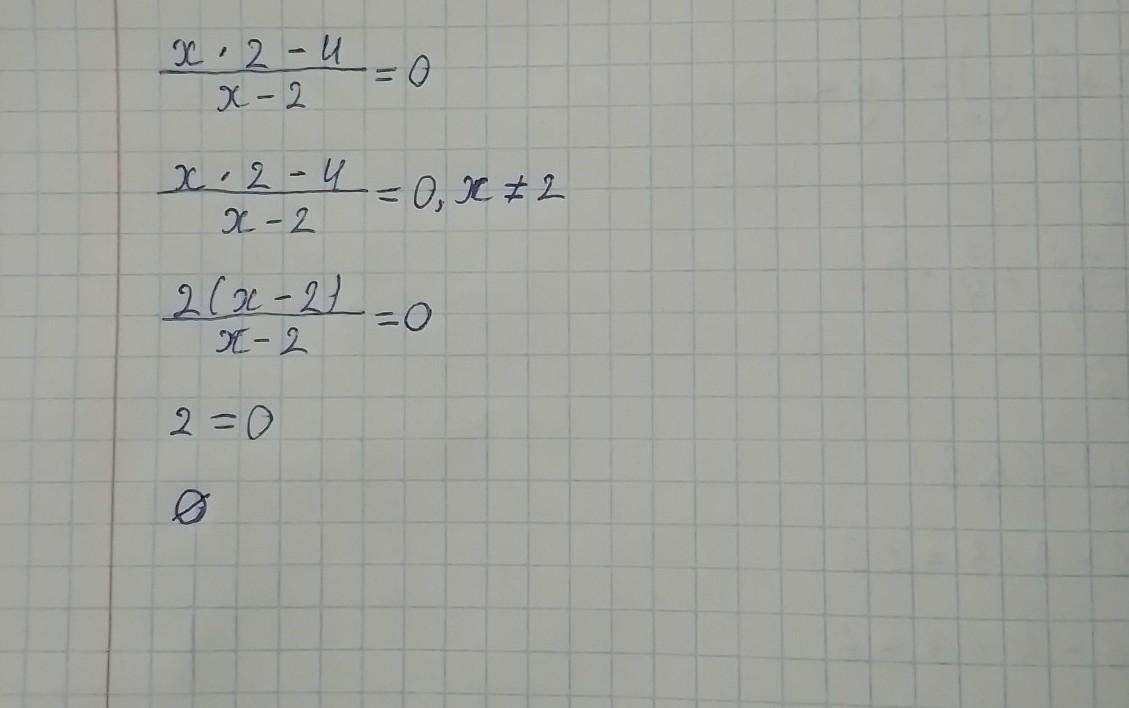 x · 2 - 4
x - 2
= 0
x · 2 - 4
x - 2
= 0, x ≠ 2
2(x - 2)
x - 2
= 0
2 = 0
∅